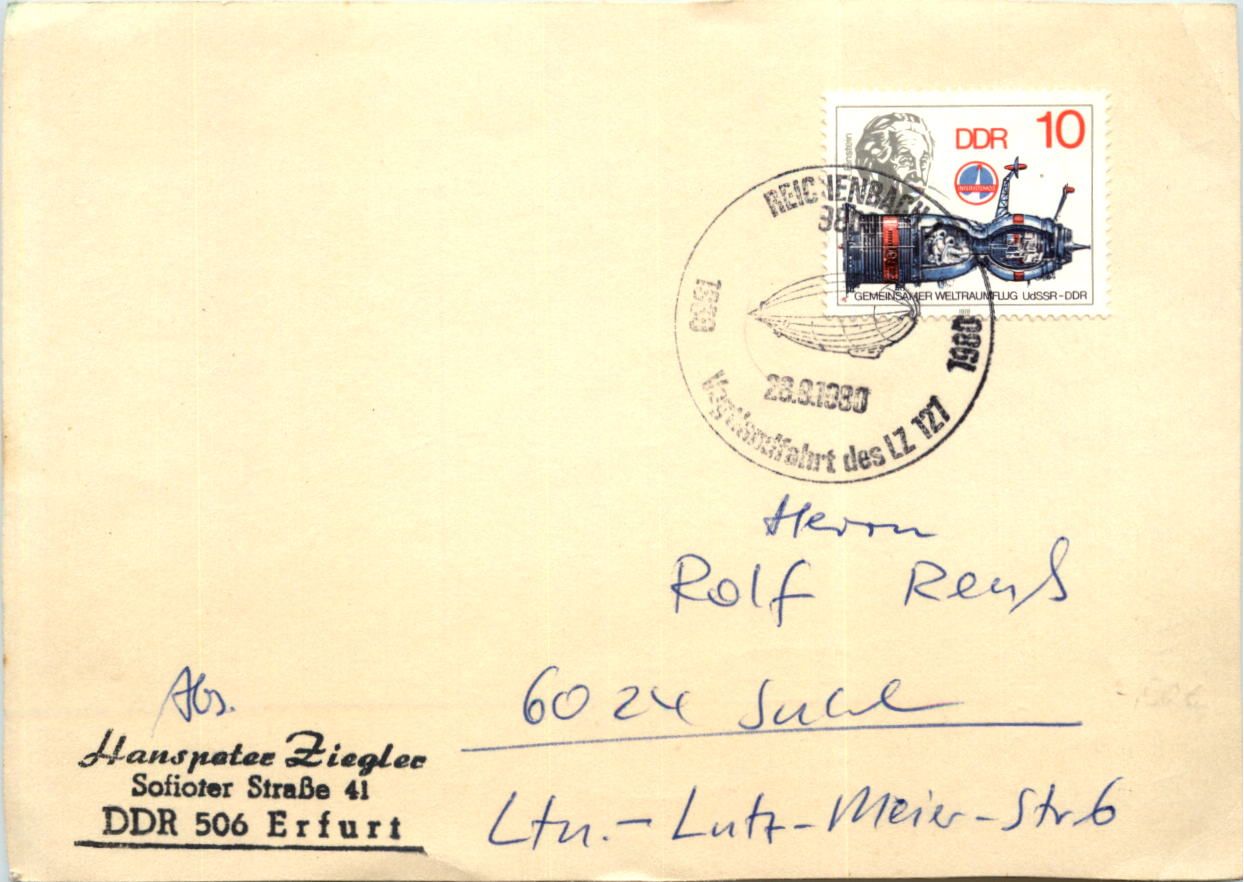 DDR 10
INTERKOSMOS
GEMEINSAMER WELTRAUMFLUG UdSSR-DDR
REICHENBACH
1980
28.8.1980
Vogtlandfahrt des LZ 127
Herrn
Rolf Reuß
6024 Suhl
Ltn.-Lutz-Meier-Str. 6
Abs.
Hanspeter Ziegler
Sofioter Straße 41
DDR 506 Erfurt